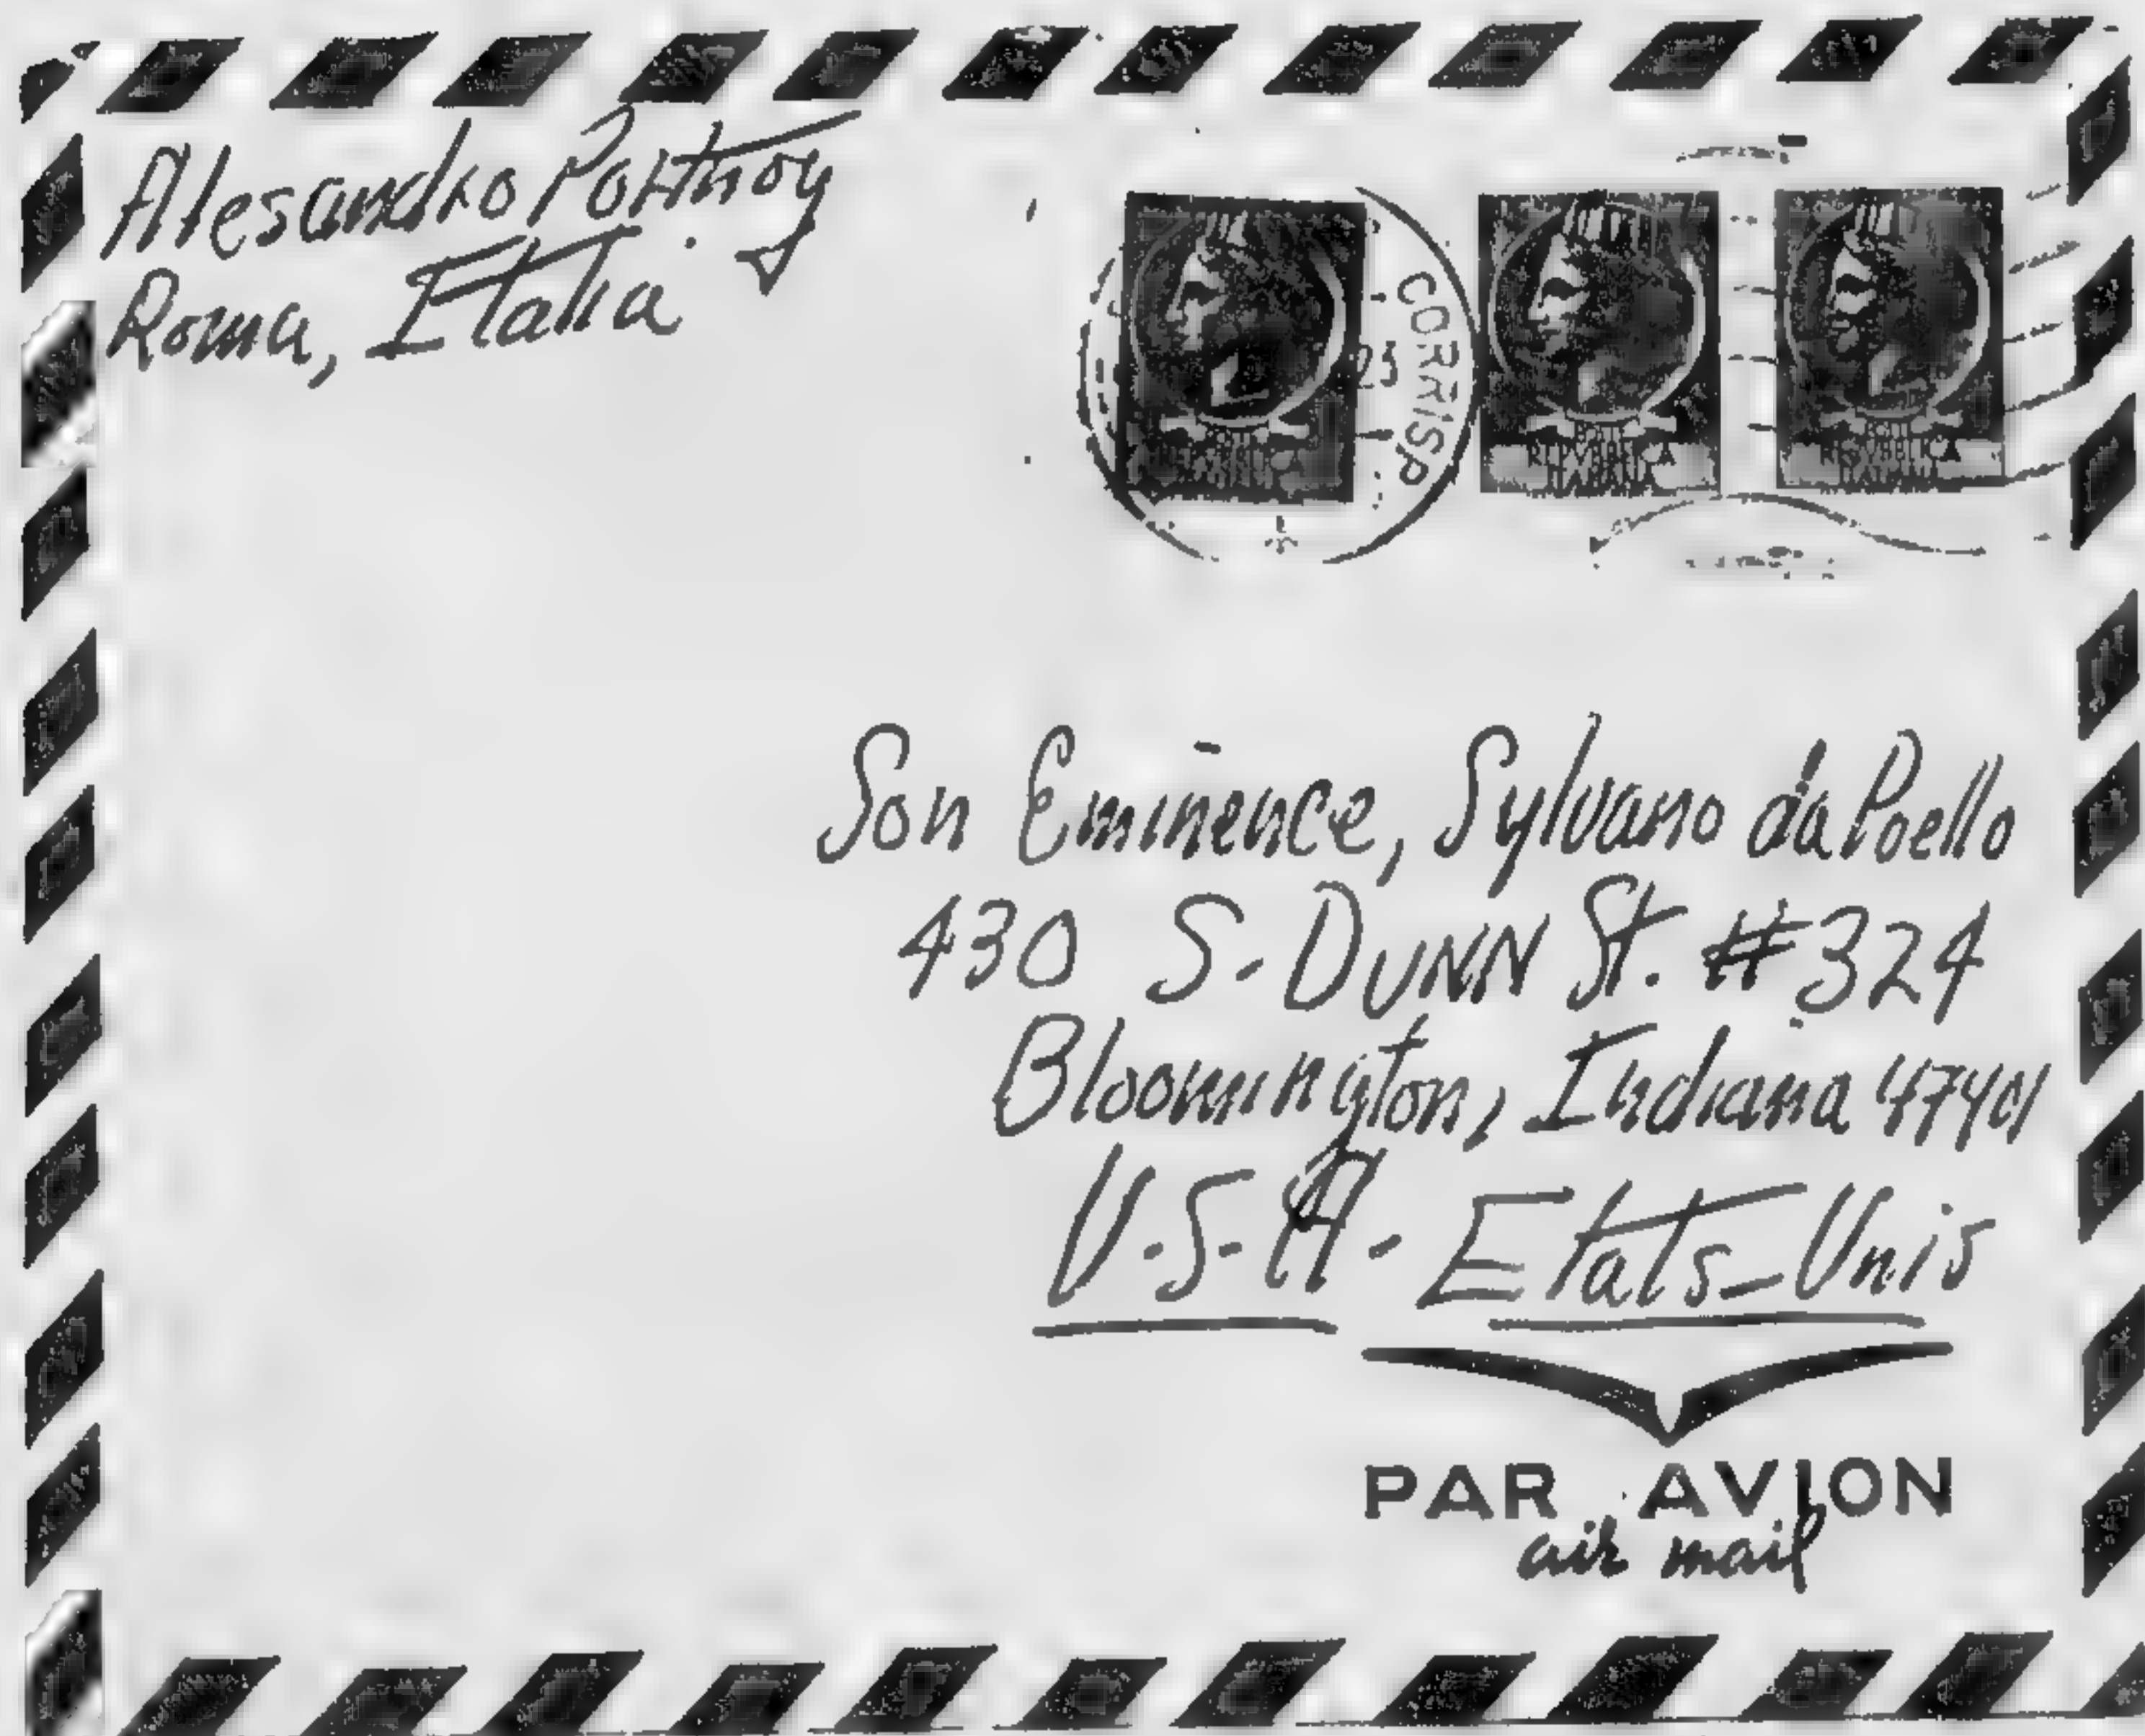 Alesandro Portnoy
Roma, Italia
CORRISP
23
POSTE
REPVBBLICA
ITALIANA
Son Eminence, Sylvano da Poello
430 S. DUNN St. #324
Bloomington, Indiana 47401
U.S.A. Etats-Unis
PAR AVION
air mail